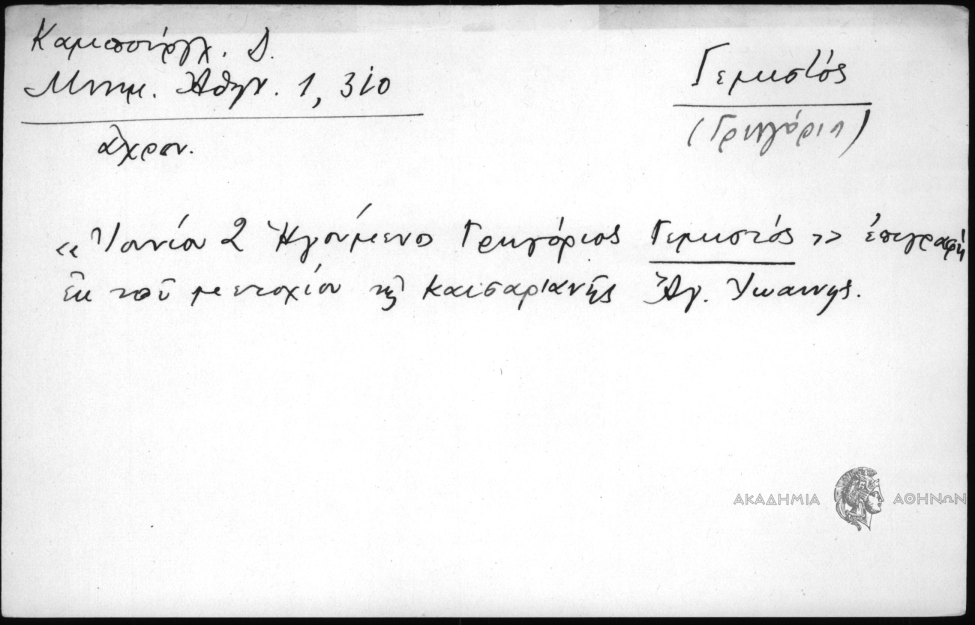 Καμπούργλ. Δ.
Μνημ. Ἀθην. 1, 310
ἄχρον.
Γεμιστός
(Γρηγόριος)
«Ἰουνίου 2 Ἡγούμενος Γρηγόριος Γεμιστός» ἐπιγραφὴ
ἐκ τοῦ μετοχίου τῆς Καισαριανῆς Ἅγ. Ἰωάννης.
ΑΚΑΔΗΜΙΑ ΑΘΗΝΩΝ